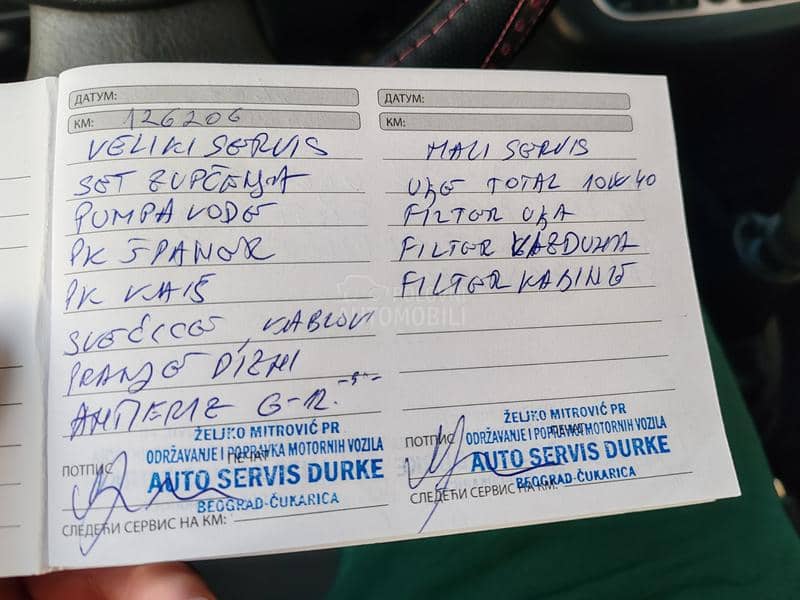 ДАТУМ:
КМ: 126206
VELIKI SERVIS
SET ZUPČENJA
PUMPA VODE
PK ŠPANER
PK KAIŠ
SVEĆICE, KABLOVI
PRANJE DIZNI
ANTIFRIZ G-12
ПОТПИС
ПЕЧАТ
ŽELJKO MITROVIĆ PR
ODRŽAVANJE I POPRAVKA MOTORNIH VOZILA
AUTO SERVIS DURKE
BEOGRAD-ČUKARICA
СЛЕДЕЋИ СЕРВИС НА КМ:
ДАТУМ:
КМ:
MALI SERVIS
ULJE TOTAL 10W40
FILTER ULJA
FILTER VAZDUHA
FILTER KABINE
ПОТПИС
ПЕЧАТ
ŽELJKO MITROVIĆ PR
ODRŽAVANJE I POPRAVKA MOTORNIH VOZILA
AUTO SERVIS DURKE
BEOGRAD-ČUKARICA
СЛЕДЕЋИ СЕРВИС НА КМ:
AUTOMOBILI